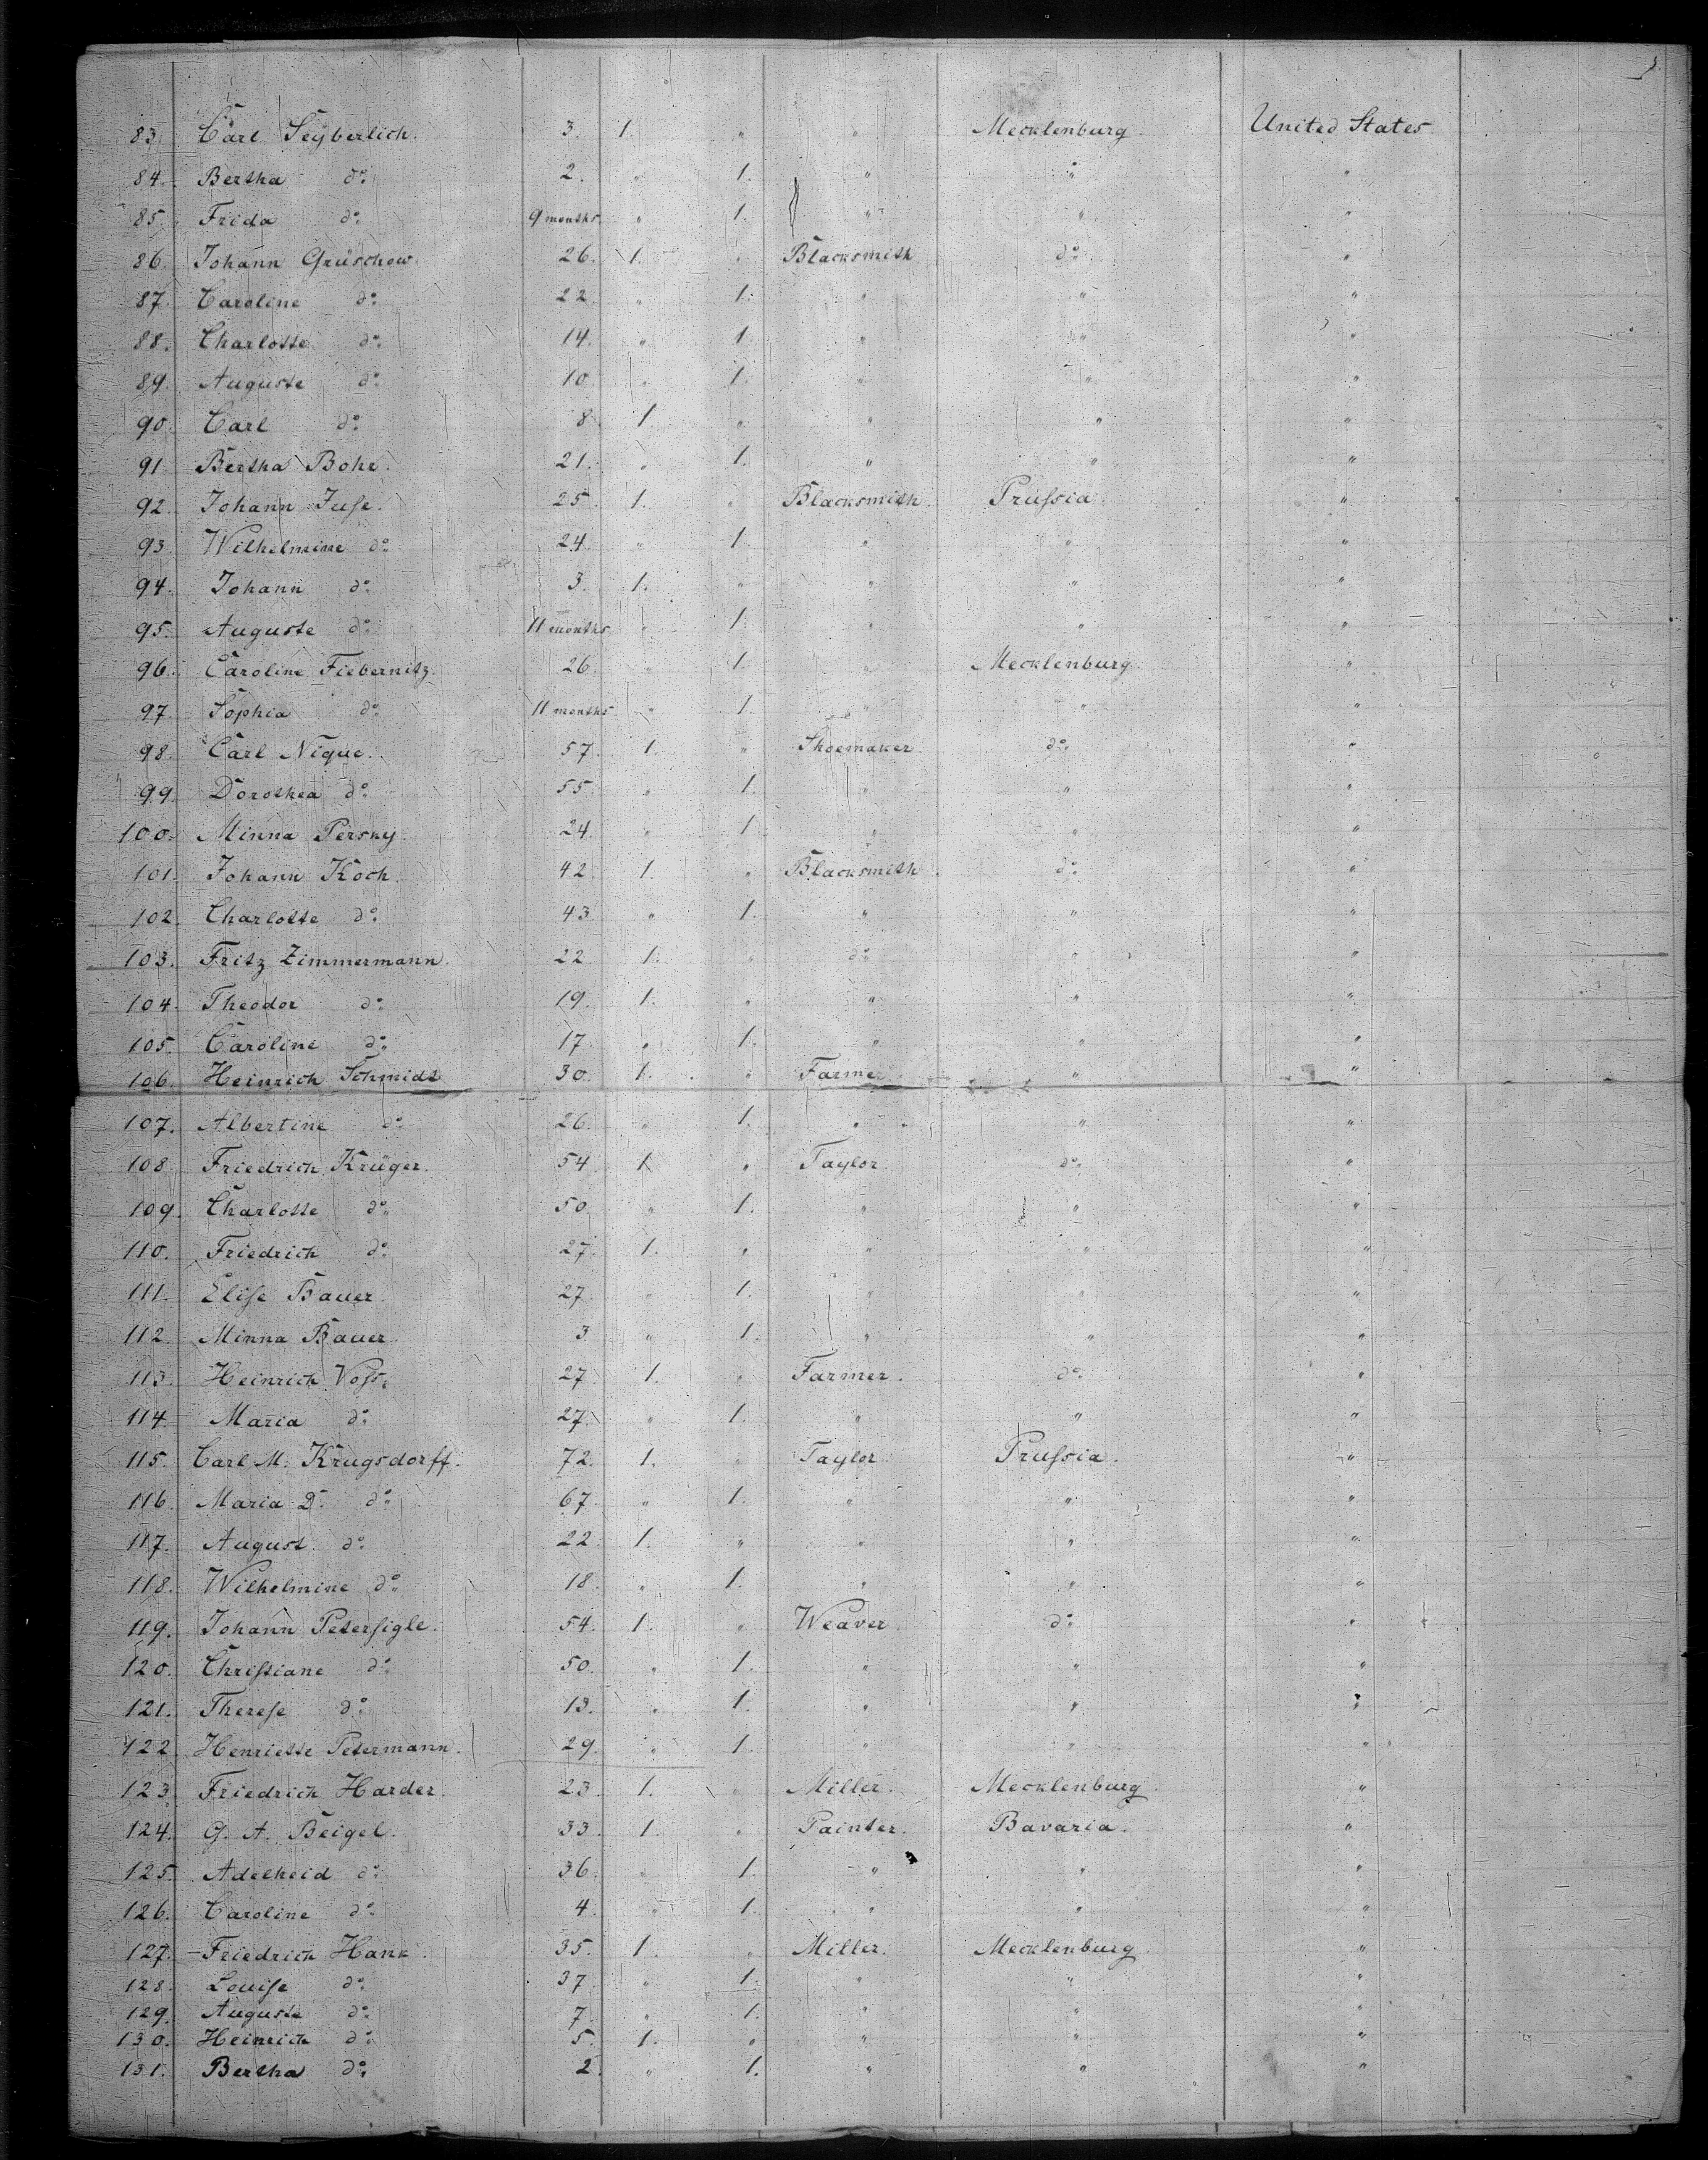 83. Carl Seyberlich. 3. 1. " " Mecklenburg. United States
84. Bertha do. 2. " 1. " do "
85. Frida do. 9 months. " 1. " " "
86. Johann Grüschow. 26. 1. " Blacksmith do. "
87. Caroline do. 22 " 1. " " "
88. Charlotte do. 14. " 1. " " "
89. Auguste do. 10 " 1. " " "
90. Carl do. 8 1 " " " "
91 Bertha Bohr. 21. " 1. " " "
92. Johann Juse. 25 1. " Blacksmith. Prussia "
93. Wilhelmine do. 24. " 1. " " "
94. Johann do. 3. 1. " " " "
95. Auguste do. 11 months " 1. " " "
96. Caroline Fiebernitz. 26. " 1. " Mecklenburg. "
97. Sophia do. 11 months " 1. " " "
98. Carl Nique. 57. 1. " Shoemaker. do. "
99. Dorothea do. 55. " 1. " " "
100. Minna Persky. 24. " 1. " " "
101. Johann Koch. 42. 1. " Blacksmith. do. "
102. Charlotte do. 43. " 1. " " "
103. Fritz Zimmermann. 22. 1. " do. " "
104. Theodor do. 19. 1. " " " "
105. Caroline do. 17. " 1. " " "
106. Heinrich Schmidt 30. 1. " Farmer. " "
107. Albertine do. 26. " 1. " " "
108 Friedrich Krüger. 54 1. " Taylor. do. "
109. Charlotte do. 50. " 1. " " "
110. Friedrich do. 27. 1. " " " "
111. Elise Bauer. 27. " 1. " " "
112. Minna Bauer 3 " 1. " " "
113. Heinrich Voss. 27 1. " Farmer. do. "
114. Maria do. 27. " 1. " " "
115. Carl M. Krugsdorff. 72. 1. " Taylor Prussia. "
116. Maria D. do. 67. " 1. " " "
117. August. do. 22. 1. " " " "
118. Wilhelmine do. 18. " 1. " " "
119. Johann Petersigle. 54. 1. " Weaver. do. "
120. Christiane do. 50. " 1. " " "
121. Therese do. 13. " 1. " " "
122. Henriette Petermann. 29. " 1. " " "
123. Friedrich Harder. 23. 1. " Miller. Mecklenburg. "
124. G. A. Beigel. 33. 1. " Painter. Bavaria. "
125. Adelheid do. 36. " 1. " " "
126. Caroline do. 4. " 1. " " "
127. Friedrich Hank. 35. 1. " Miller. Mecklenburg. "
128. Louise do. 37. " 1. " " "
129. Auguste do. 7. " 1. " " "
130. Heinrich do. 5. 1. " " " "
131. Bertha do. 2. " 1. " " "